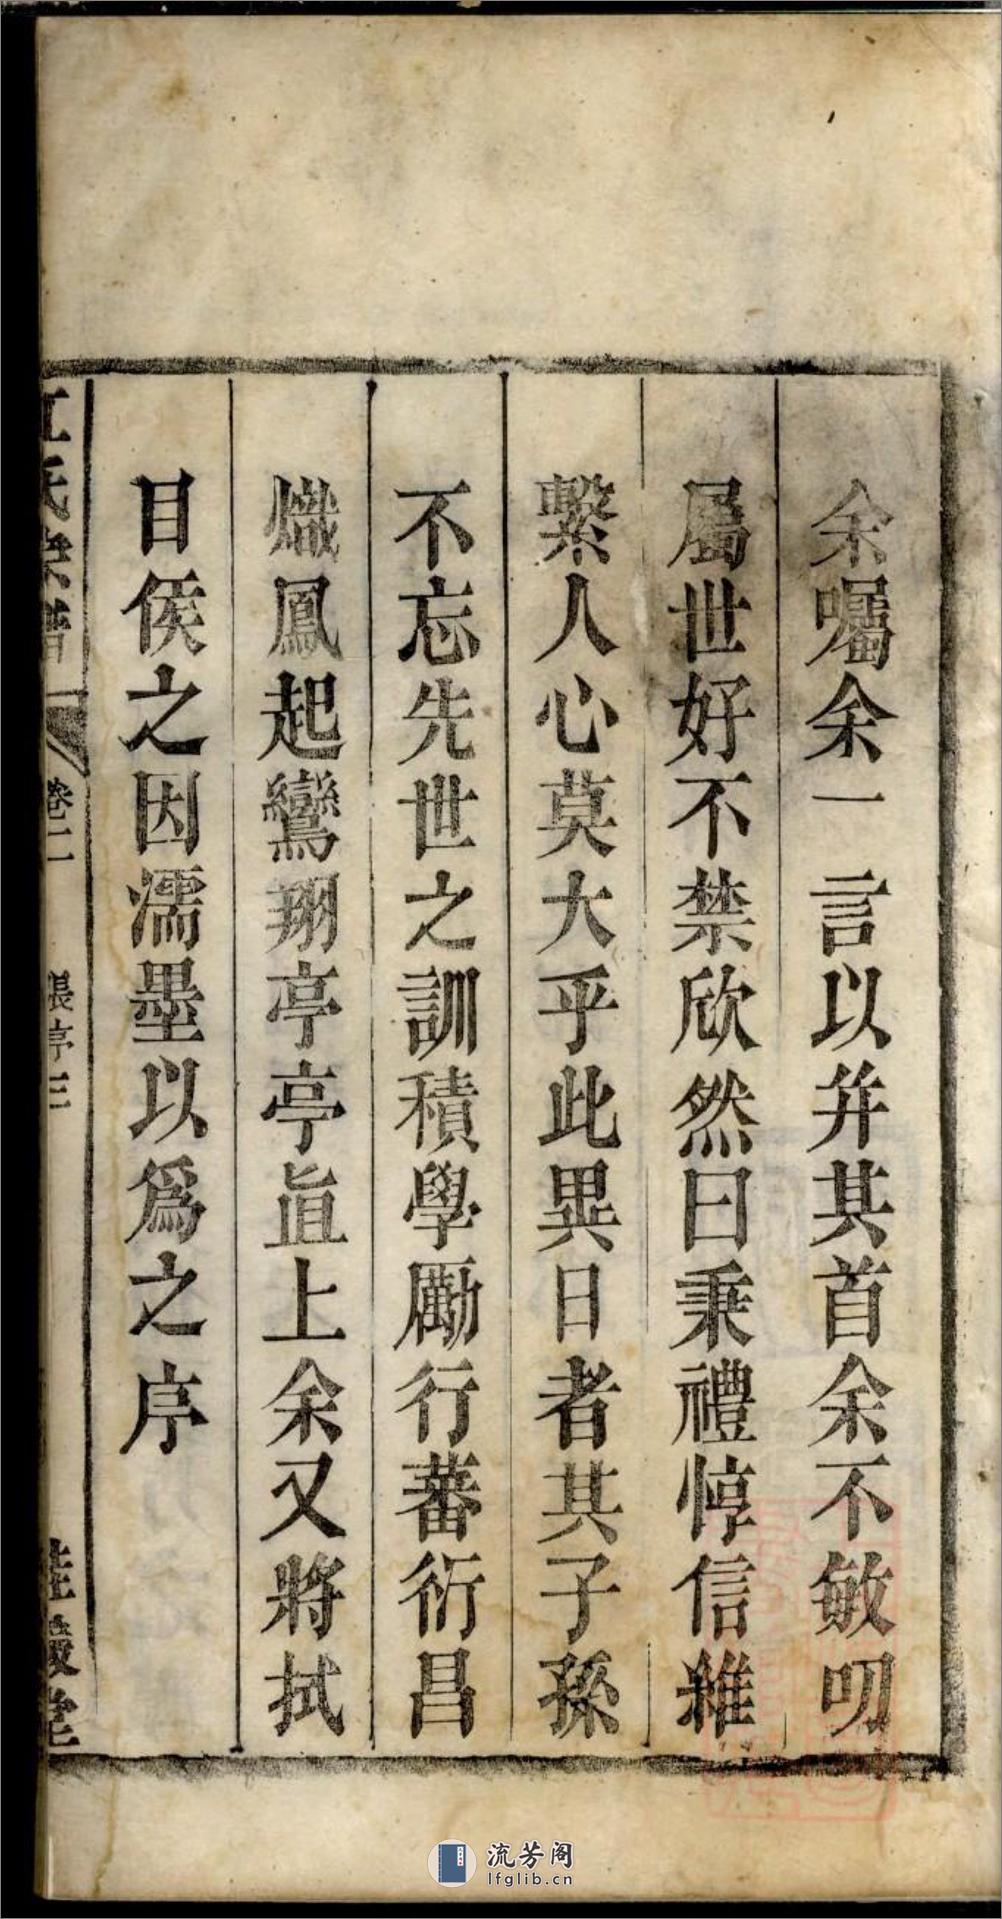 余囑余一言以弁其首余不敏叨
屬世好不禁欣然曰秉禮惇信維
繫人心莫大乎此異日者其子孫
不忘先世之訓積學勵行蕃衍昌
熾鳳起鸞翔亭亭直上余又將拭
目俟之因濡墨以爲之序
江氏宗譜
卷二
張序三
流芳阁
lfglib.cn